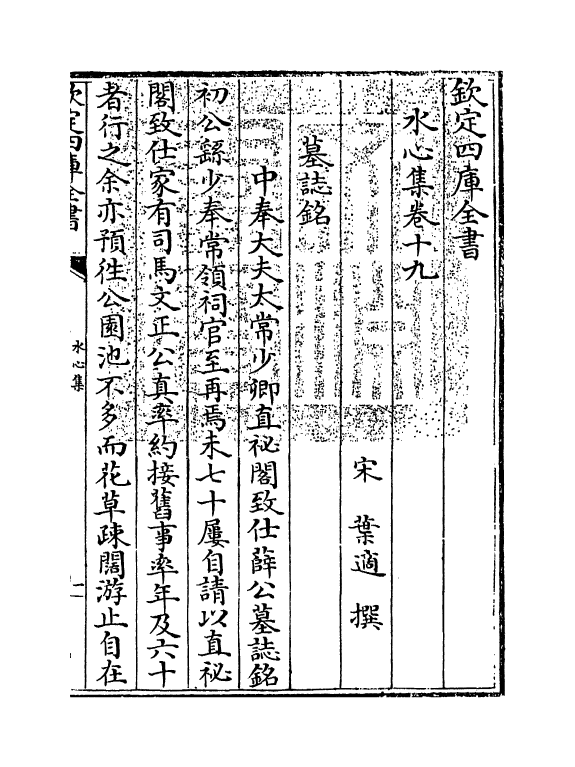 欽定四庫全書
水心集卷十九
宋 葉適 撰
墓誌銘
中奉大夫太常少卿直祕閣致仕薛公墓誌銘
初公繇少奉常領祠官至再焉未七十屢自請以直祕
閣致仕家有司馬文正公真率約接舊事率年及六十
者行之余亦預徃公園池不多而花草疎闊游止自在
欽定四庫全書
水心集